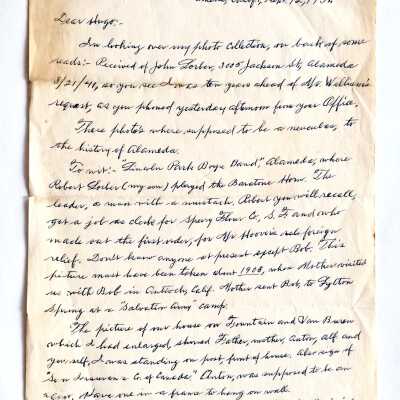 Dear Hugo:-
In looking over my photo collection, on back of some
reads:- Received of John Lorber, 3005 Jackson St, Alameda
3/21/40, as you see I was ten years ahead of Mr.
request, as you phoned yesterday afternoon from your Office.
These photos where supposed to be a nucusless, to
the history of Alameda.
To wit:- "Lincoln Park Boys Band," Alameda, where
Robert Lorber (my son) played the Baratone Horn. The
leader, a man with a mustach. Robert you will recall,
got a job as clerk for Sperry Flour Co, S.F. and who
made out the first order, for Mr Hoover's foreign
relief. Don't know anyone at present except Bob. This
picture must have been taken about 1908, when Mother visited
us with Bob in Antioch, Calif. Mother sent Bob, to Lytton
Spring at a "Salvation Army" camp.
The picture of our house on Fountain and Van Buren
which I had enlarged, showed Father, mother, Anton, Alf. and
yourself, I was standing on post front of house. Also sign of
"Sun Insurance Co. of Canada," Anton, was supposed to be an
Have one in a frame to hang on wall